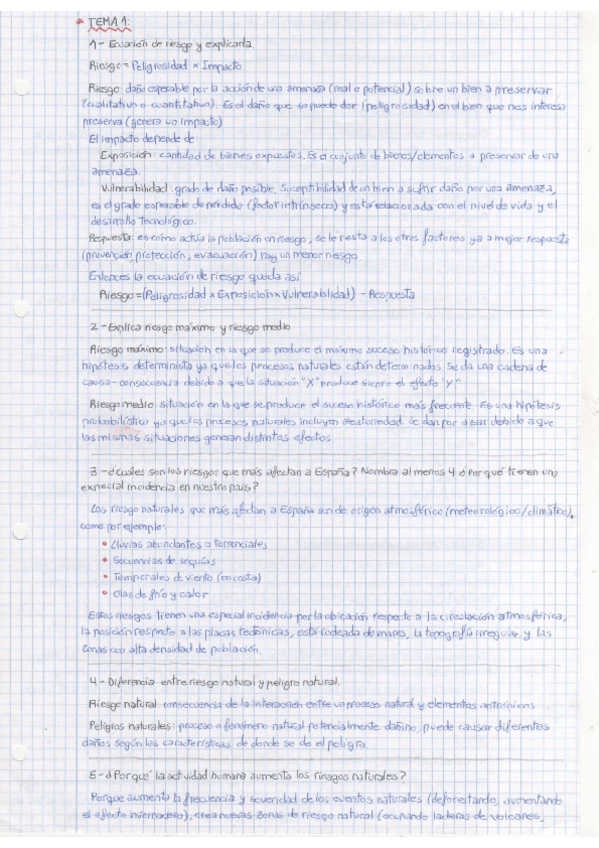 * TEMA 1:
1 - Ecuación de riesgo y explicarla
Riesgo = Peligrosidad x Impacto
Riesgo: daño esperable por la acción de una amenaza (real o potencial) sobre un bien a preservar
(cualitativo o cuantitativo). Es el daño que se puede dar (peligrosidad) en el bien que nos interesa
preserva (genera un impacto)
El impacto depende de:
Exposición: cantidad de bienes expuestos. Es el conjunto de bienes/elementos a preservar de una
amenaza.
Vulnerabilidad: grado de daño posible. Suceptibilidad de un bien a sufrir daño por una amenaza,
es el grado esperable de pérdida (factor intrínseco) y está relacionada con el nivel de vida y el
desarrollo tecnológico.
Respuesta: es cómo actúa la población un riesgo, se le resta a los otros factores ya a mejor respuesta
(prevención, protección, evacuación) hay un menor riesgo.
Entonces la ecuación de riesgo queda así:
Riesgo = (Peligrosidad x Exposición x Vulnerabilidad) - Respuesta
2 - Explica riesgo máximo y riesgo medio
Riesgo máximo: situación en la que se produce el máximo suceso histórico registrado. Es una
hipótesis determinista ya que los procesos naturales están determinados. Se da una cadena de
causa-consecuencia debido a que la situación "X" produce siempre el efecto "Y"
Riesgo medio: situación en la que se produce el suceso histórico más frecuente. Es una hipótesis
probabilística ya que los procesos naturales incluyen aleatoriedad. Se dan por azar debido a que
las mismas situaciones generan distintos efectos.
3 - ¿Cuáles son los riesgos que más afectan a España? Nombra al menos 4 ¿Por qué tienen una
especial incidencia en nuestro país?
Los riesgo naturales que más afectan a España son de origen atmosférico (meteorológico/climático),
como por ejemplo:
• Lluvias abundantes o torrenciales
• Secuencias de sequías
• Temporales de viento (en costa)
• Olas de frío y calor
Estos riesgos tienen una especial incidencia por la ubicación respecto a la circulación atmosférica,
la posición respecto a las placas tectónicas, está rodeada de mares, la topografía irregular y las
zonas con alta densidad de población.
4 - Diferencia entre riesgo natural y peligro natural.
Riesgo natural: consecuencia de la interacción entre un proceso natural y elementos antrópicos
Peligros naturales: proceso o fenómeno natural potencialmente dañino, puede causar diferentes
daños según las características de donde se da el peligro.
5 - ¿Por qué la actividad humana aumenta los riesgos naturales?
Porque aumenta la frecuencia y severidad de los eventos naturales (deforestando, aumentando
el efecto invernadero), crea nuevas zonas de riesgo natural (ocupando laderas de volcanes,